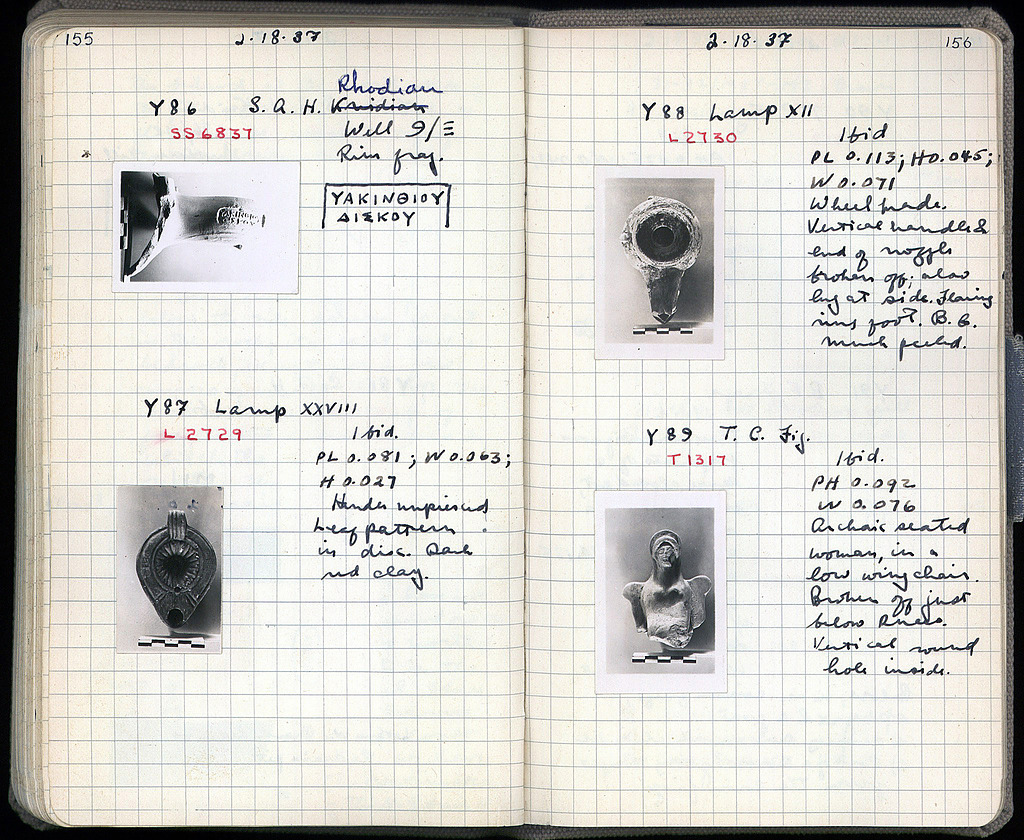 155
2·18·37
Rhodian
Y86 S.A.H. Knidian
SS 6837
Well 9/Ξ
Rim frag.
*
ΥΑΚΙΝΘΙΟΥ
ΔΙΣΚΟΥ
Y87 Lamp XXVIII
L 2729
Ibid.
PL 0.081; W 0.063;
H 0.027
Handle unpierced
Leaf pattern
in disc. Dark
red clay.
2·18·37
156
Y88 Lamp XII
L 2730
Ibid
PL 0.113; H 0.045;
W 0.071
Wheel made.
Vertical handle &
end of nozzle
broken off; also
lug at side. Flaring
ring foot. B.G.
much peeled.
Y89 T.C. Fig.
T 1317
Ibid.
PH 0.092
W 0.076
Archaic seated
woman, in a
low wing chair.
Broken off just
below knees.
Vertical round
hole inside.